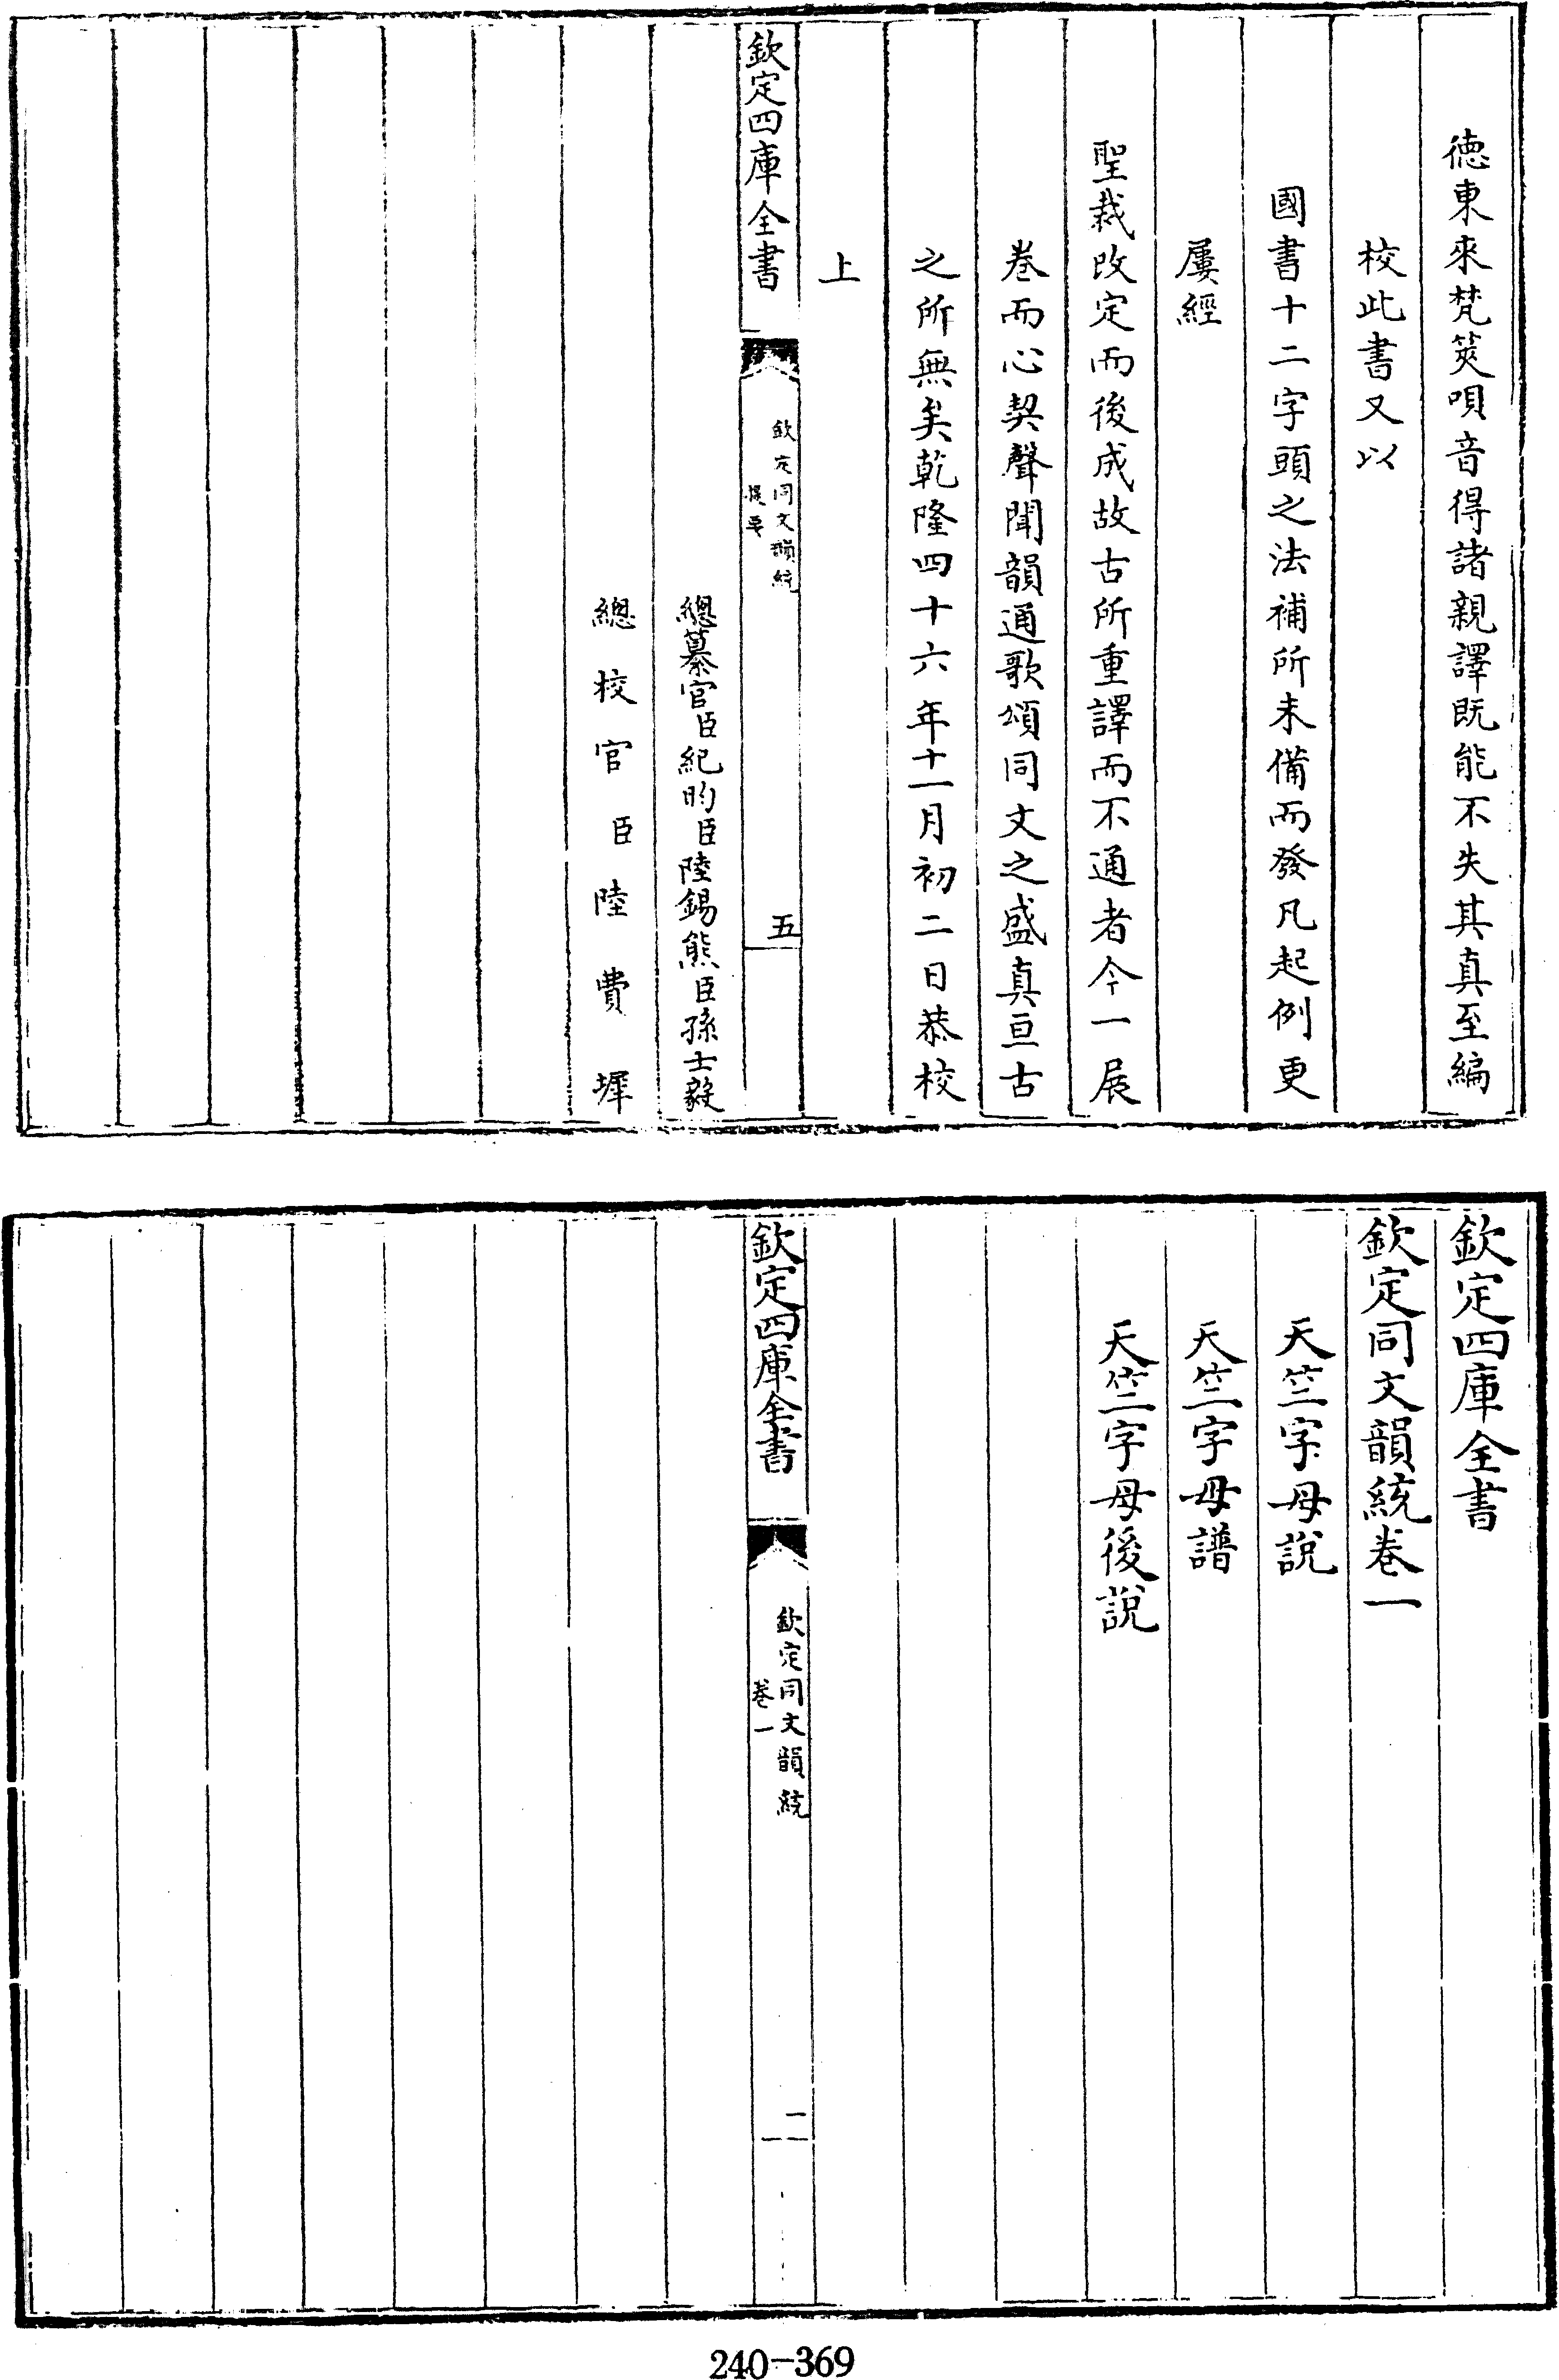 德東來梵筴唄音得諸親譯既能不失其真至編
校此書又以
國書十二字頭之法補所未備而發凡起例更
屢經
聖裁改定而後成故古所重譯而不通者今一展
卷而心契聲聞韻通歌頌同文之盛真亘古
之所無矣乾隆四十六年十一月初二日恭校
上
欽定四庫全書
欽定同文韻統
提要
五
總纂官臣紀昀臣陸錫熊臣孫士毅
總校官臣陸費墀
欽定四庫全書
欽定同文韻統卷一
天竺字母說
天竺字母譜
天竺字母後說
欽定四庫全書
欽定同文韻統
卷一
一
240-369